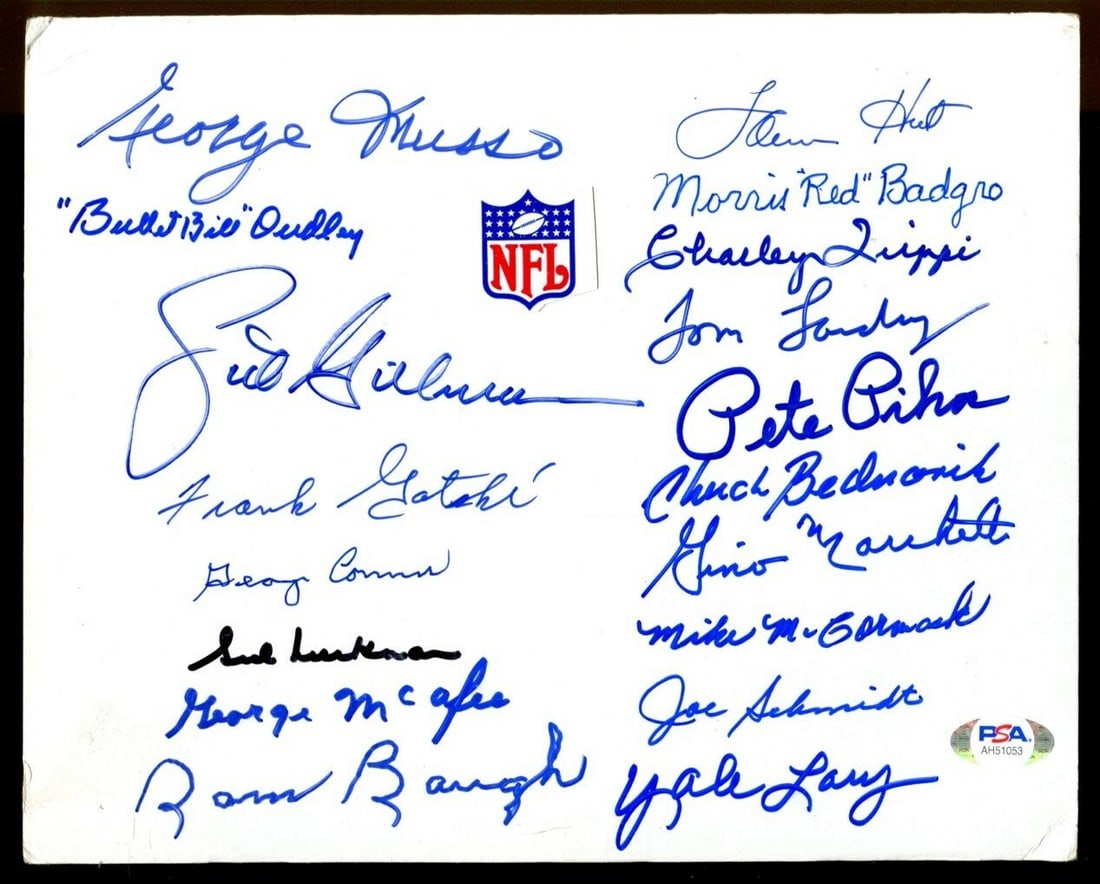 George Musso
"Bullet Bill" Dudley
Sid Gillman
Frank Gatski
George Connor
Sid Luckman
George McAfee
Sam Baugh
NFL
Don Hutson
Morris "Red" Badgro
Charley Trippi
Tom Landry
Pete Pihos
Chuck Bednarik
Gino Marchetti
Mike McCormack
Joe Schmidt
Yale Lary
PSA
AH51053